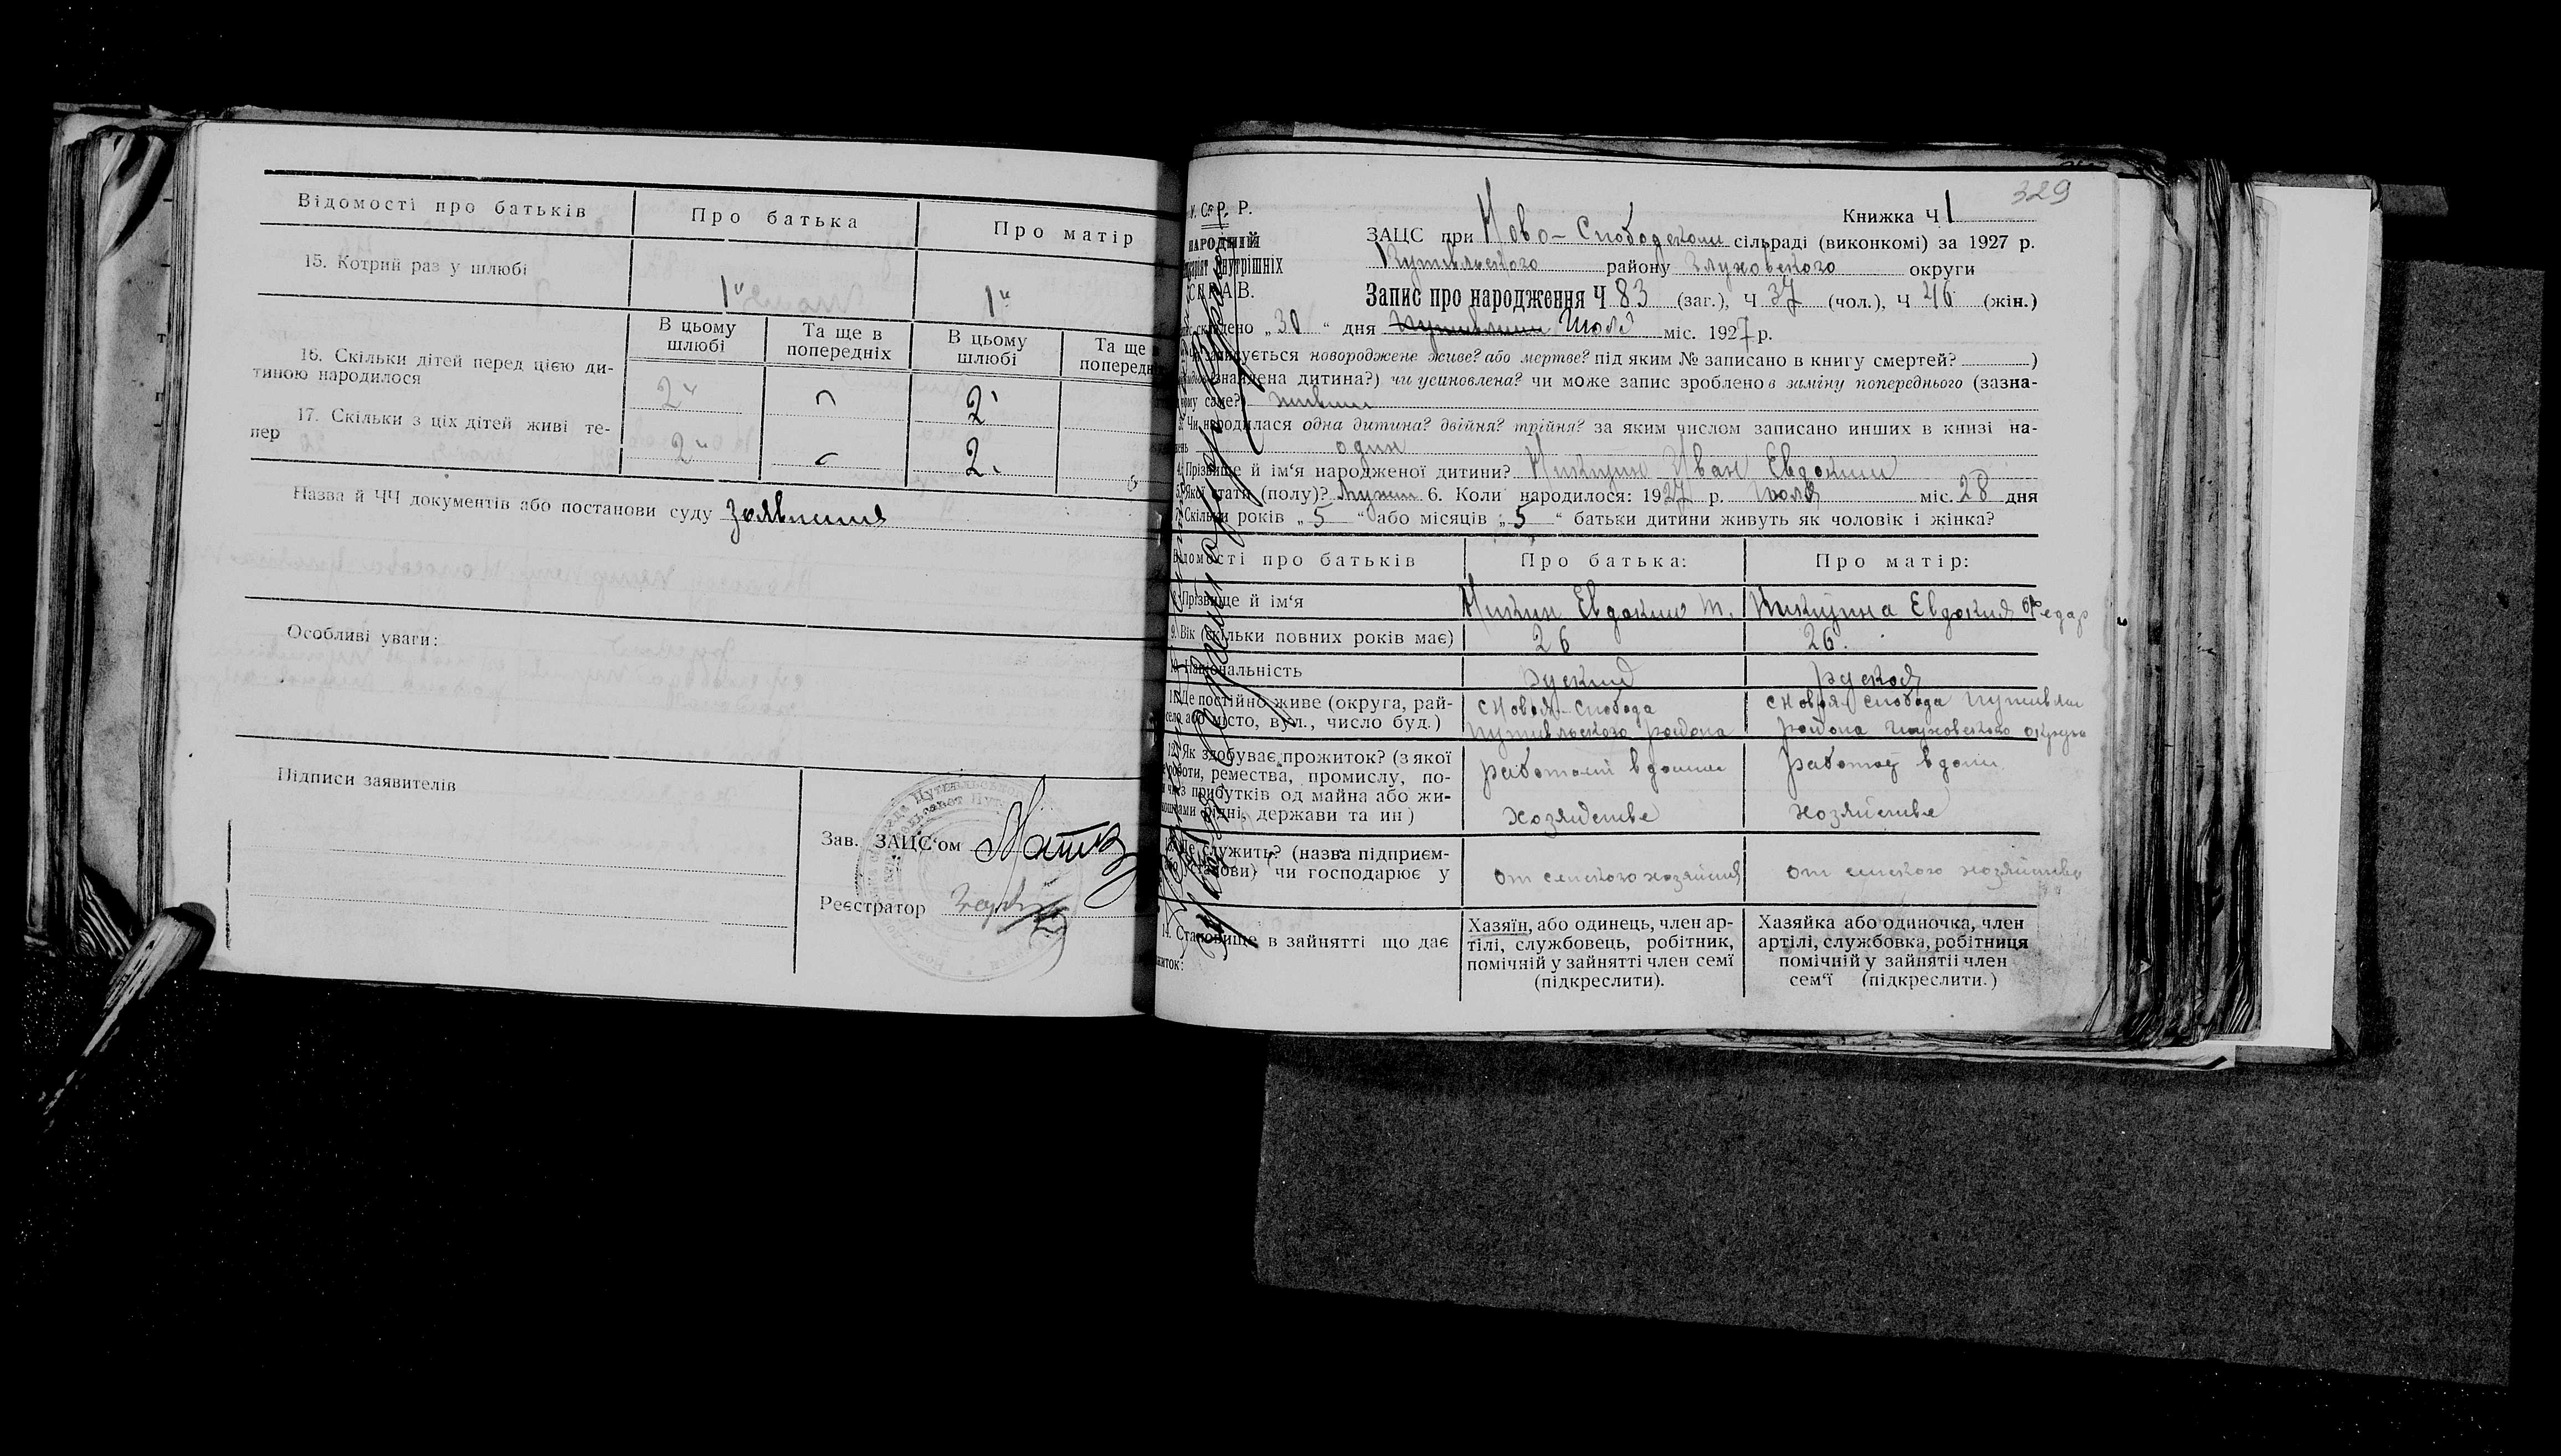 Відомості про батьків
Про батька
Про матір
15. Котрий раз у шлюбі
1й
1й
В цьому шлюбі
Та ще в попередніх
В цьому шлюбі
Та ще в
16. Скільки дітей перед цією ди-
тиною народилося
2
2
17. Скільки з ціх дітей живі те-
пер
2
2
Назва й ЧЧ документів або постанови суду заявления
Особливі уваги:
Підписи заявителів
Зав. ЗАЦС'ом
Реєстратор
329
У. С. Р. Р.
НАРОДНІЙ
Внутрішніх
СПРАВ.
Книжка Ч 1
ЗАЦС при Ново-Слободском сільраді (виконкомі) за 1927 р.
Путивльского району Глуховского округи
Запис про народження Ч 83 (заг.), Ч 37 (чол.), Ч 46 (жін.)
складено „30“ дня Июля міс. 1927 р.
записується новороджене живе? або мертве? під яким № записано в книгу смертей? )
(знайдена дитина?) чи усиновлена? чи може запис зроблено в заміну попереднього (зазна-
чому саме?)
Чи народилася одна дитина? двійня? трійня? за яким числом записано инших в книзі на-
один
4. Прізвище й ім'я народженої дитини? Иван Евдоким
5. Якої стати (полу)? мужск 6. Коли народилося: 1927 р. Июля міс. 28 дня
7. Скільки років „5“ або місяців „5“ батьки дитини живуть як чоловік і жінка?
Відомості про батьків
Про батька:
Про матір:
8. Прізвище й ім'я
Евдоким Т.
Евдокия Федар
9. Вік (скільки повних років має)
26
26.
10. Національність
руский
руская
11. Де постійно живе (округа, рай-
село або місто, вул., число буд.)
с Новая-Слобода
Путивльского района
с Новая Слобода Путивль
района Глуховского округа
12. Як здобуває прожиток? (з якої
роботи, ремества, промислу, по-
через прибутків од майна або жи-
рідні, держави та ин)
работает в домш
хозяйстве
работай в дом.
хозяйстве
13. Де служить? (назва підприєм-
або установи) чи господарює у
от сельского хозяйства
от сельского хозяйства
14. Становище в зайнятті що дає
житок:
Хазяїн, або одинець, член ар-
тілі, службовець, робітник,
помічній у зайнятті член семї
(підкреслити).
Хазяйка або одиночка, член
артілі, службовка, робітниця
помічній у зайнятіі член
сем'ї (підкреслити.)